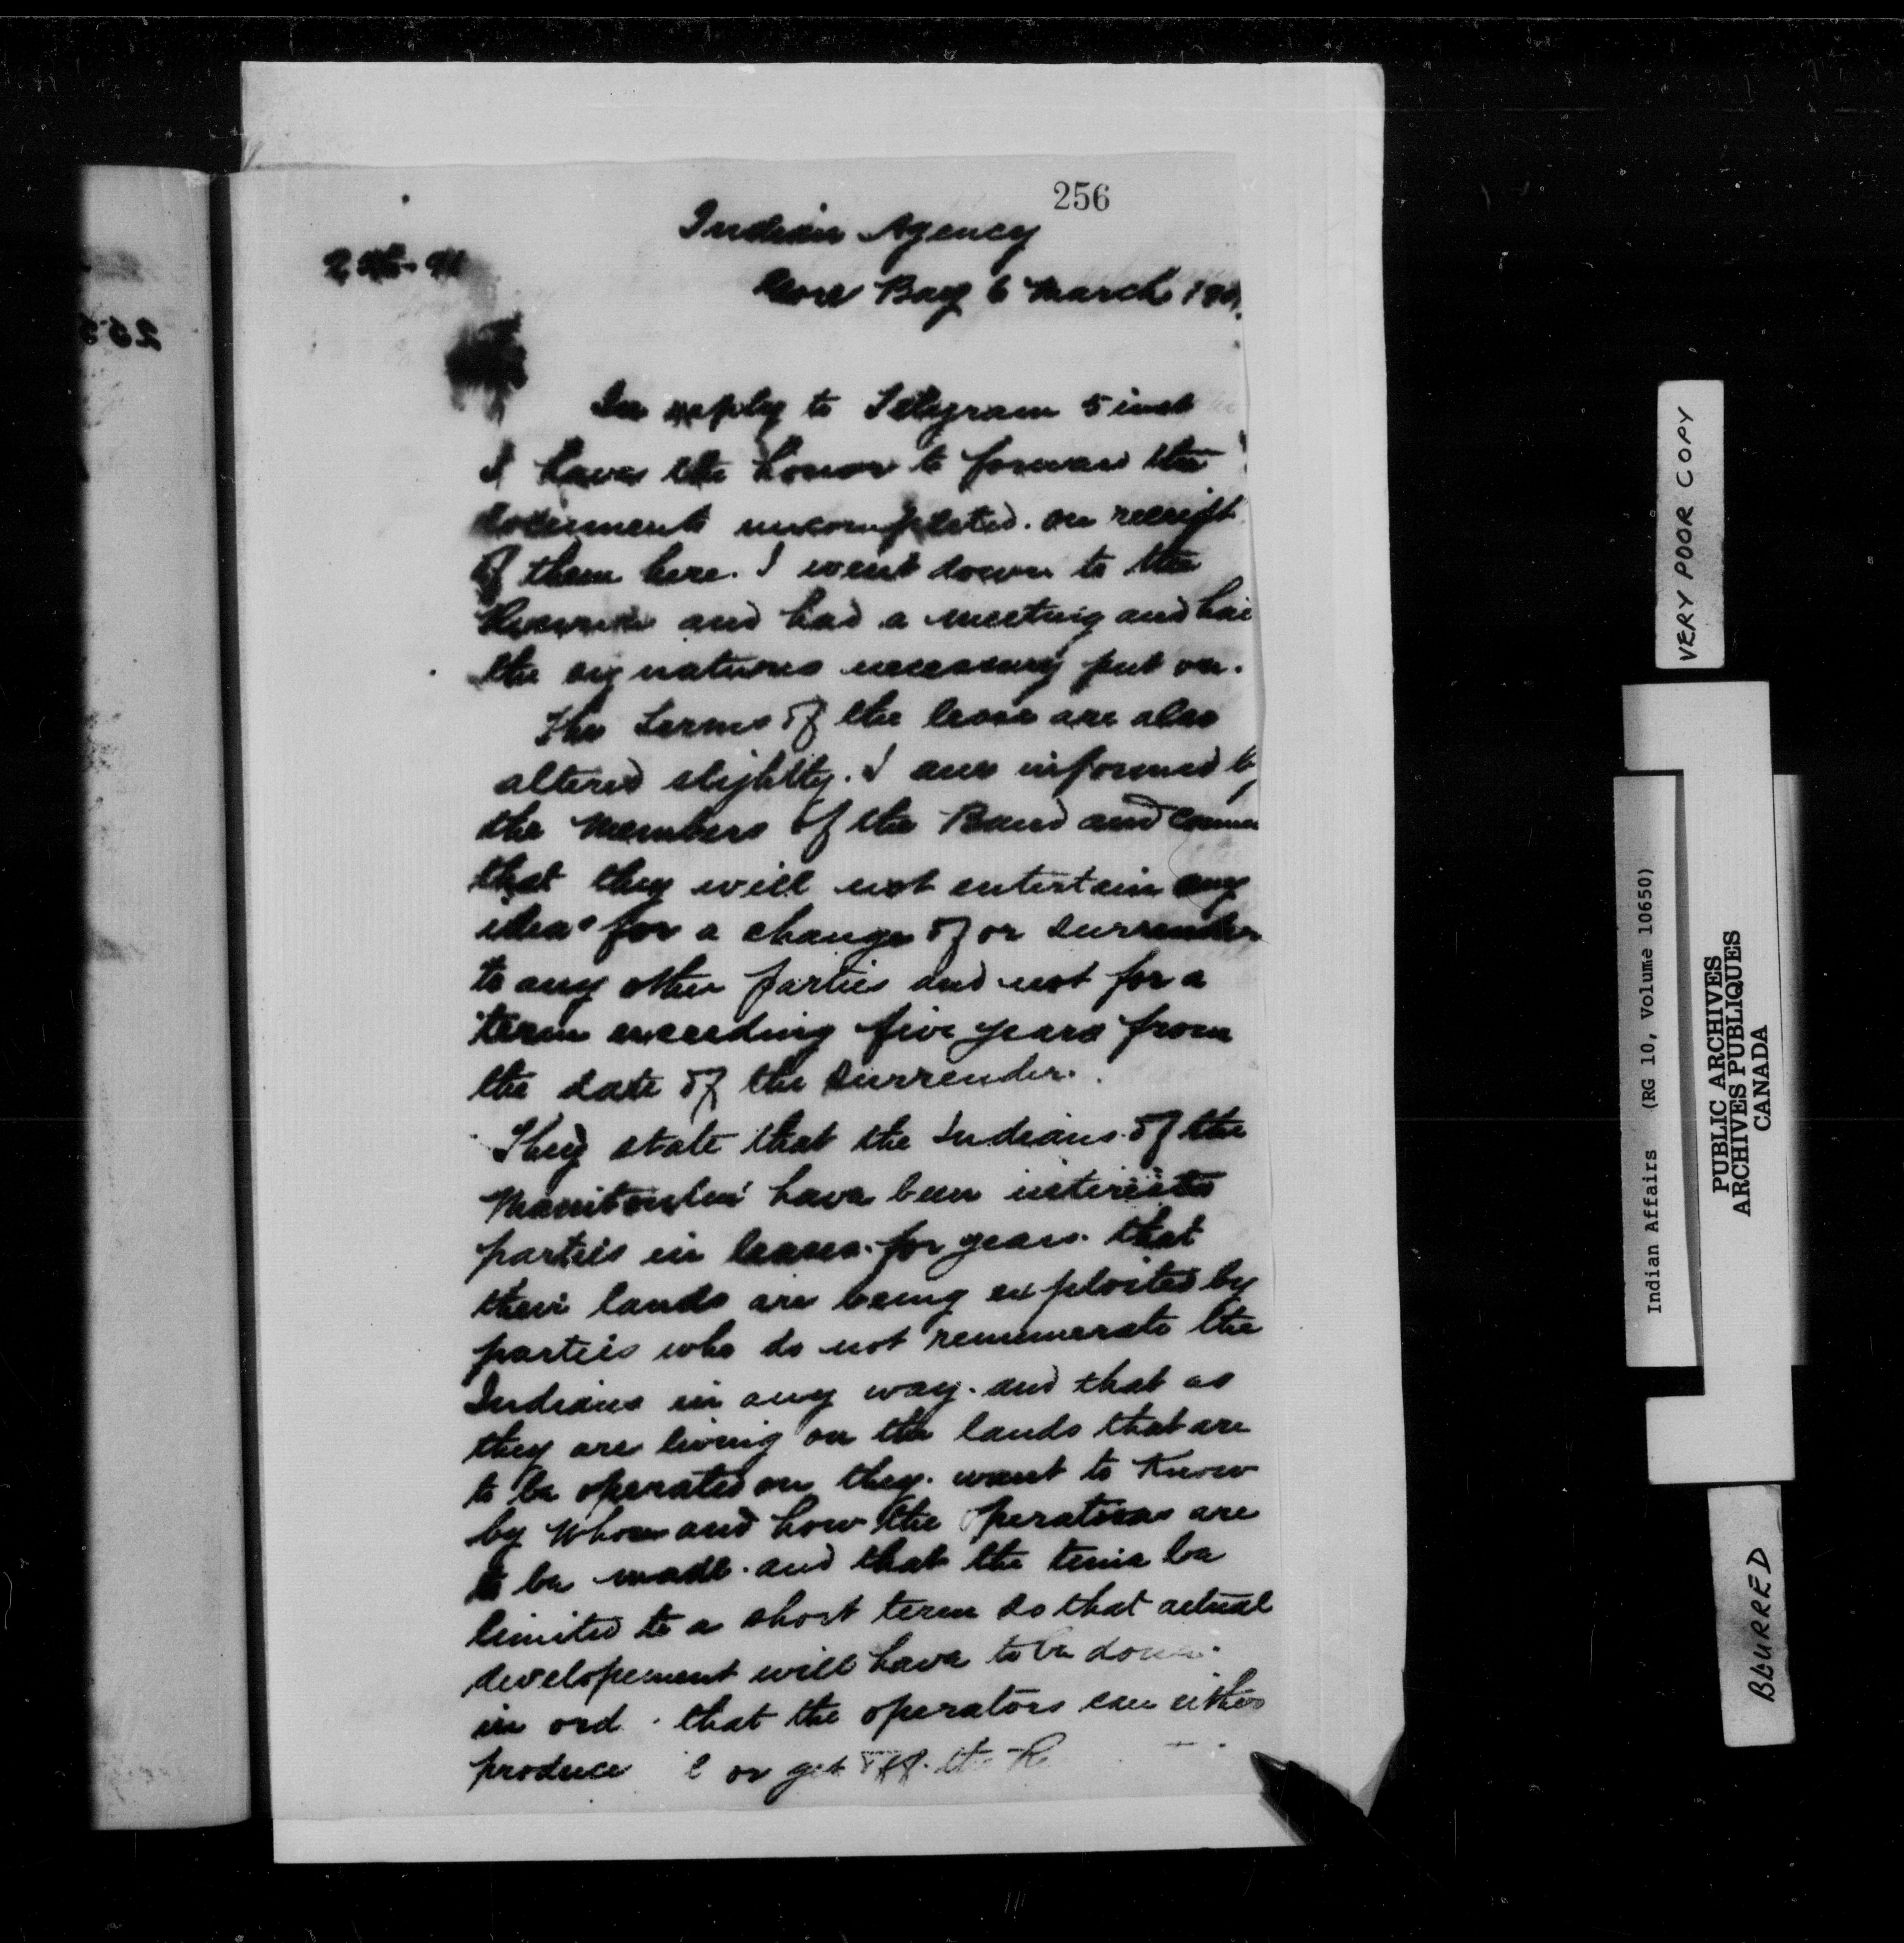 256
Indian Agency
Gore Bay 6 March 190
In reply to Telegram 5 inst
I have the honor to forward the
documents uncompleted. on receipt
of them here. I went down to the
and had a meeting and had
the signatures necessary put on.
The terms of the lease are also
altered slightly. I am informed by
the Members of the Band and
that they will not entertain any
idea for a change of or surrender
to any other parties and not for a
term exceeding five years from
the date of the Surrender.
They state that the Indians of the
Manitoulin have been interested
parties in leases for years. that
their lands are being exploited by
parties who do not renumerate the
Indians in any way. and that as
they are living on the lands that are
to be operated on they. want to Know
by Whom and how the operations are
to be made. and that the time be
limited to a short term so that actual
developement will have to be done.
in ord that the operators can either
produce or get off. the
VERY POOR COPY
Indian Affairs (RG 10, Volume 10650)
PUBLIC ARCHIVES
ARCHIVES PUBLIQUES
CANADA
BLURRED